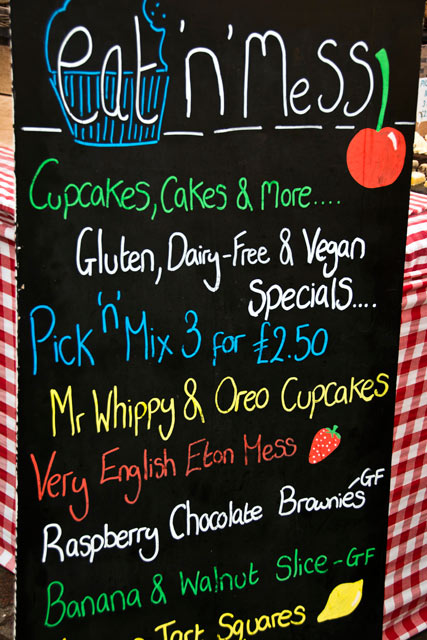 eat 'n' Mess
Cupcakes, Cakes & More....
Gluten, Dairy-Free & Vegan
Specials....
Pick 'n' Mix 3 for £2.50
Mr Whippy & Oreo Cupcakes
Very English Eton Mess
Raspberry Chocolate Brownies GF
Banana & Walnut Slice - GF
Tart Squares